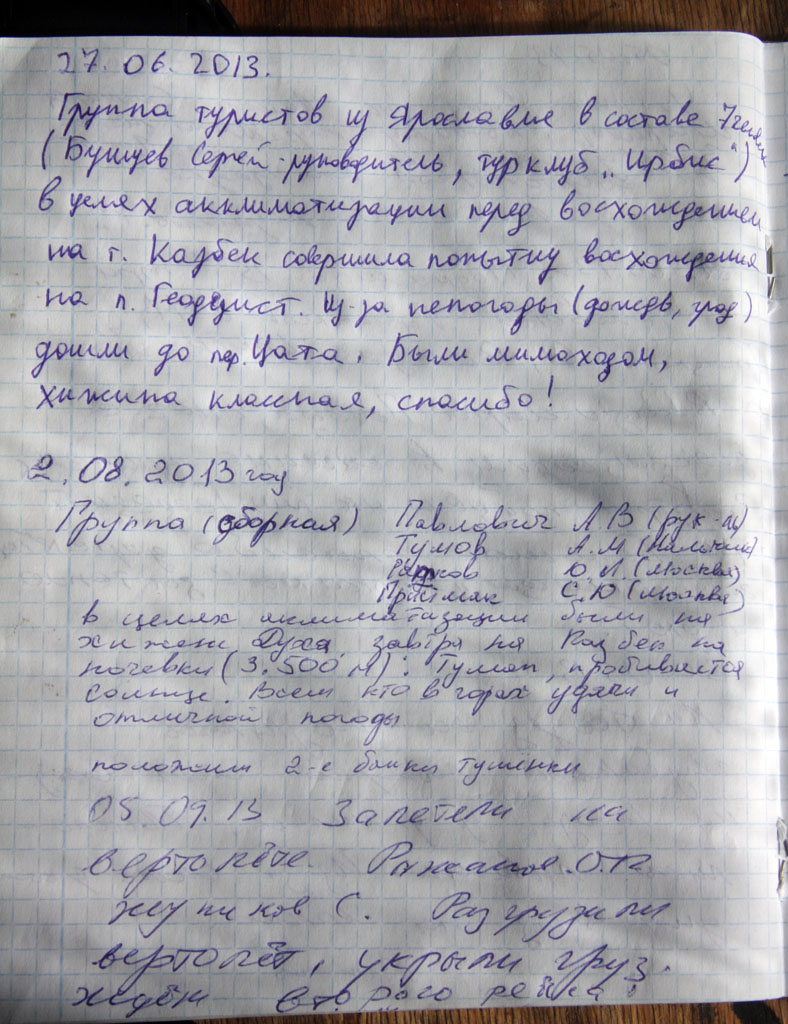 27.06.2013.
Группа туристов из Ярославля в составе 7 челов.
(Бушуев Сергей - руководитель, турклуб „Ирбис“)
в целях акклиматизации перед восхождением
на г. Казбек совершила попытку восхождения
на п. Геодезист. Из-за непогоды (дождь, град)
дошли до пер. Цата. Были мимоходом,
хижина классная, спасибо!
2.08.2013 год
Группа (сборная) Павлович А В (рук-ль)
Тумов А.М (Нальчик)
Ю.Л. (Москва)
С.Ю (Москва)
в целях аклиматизации были на
хижене Духа, завтра на Казбек на
ночевки (3.500 м). Туман, пробивается
солнце. Всем кто в горах удачи и
отличной погоды
положили 2-е банки тушенки
05.09.13 Залетели на
вертолёте
С. Разгрузили
вертолёт, укрыли груз.
Ждём второго рейса!